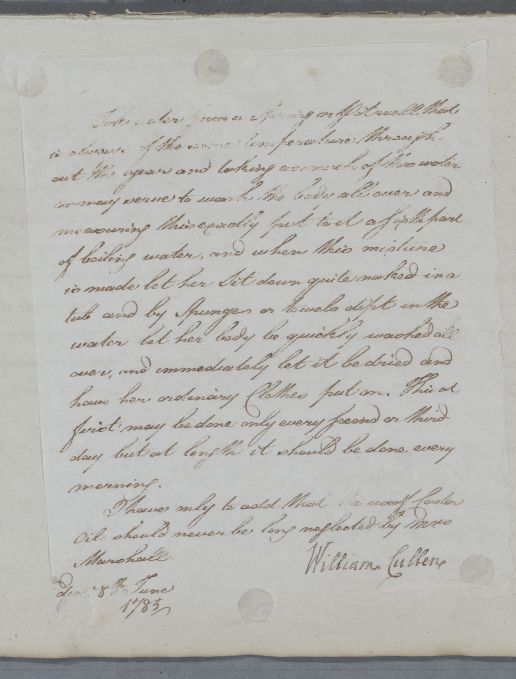 Take water from a Spring or Pit well that
is always of the same temperature through
out the year and taking as much of this water
as may serve to wash the body all over and
measuring this exactly put to it a part
of boiling water, and when this mixture
is made let her Sit down quite naked in a
tub and by Spunges or towels dipt in the
water let her body be quickly washed all
over, and immediately let it be dried and
have her ordinary Clothes put on. This at
first may be done only every second or third
day but at length it should be done every
morning.
I have only to add that the use of Castor
Oil should never be long neglected by Mrs
Marshall.
William Cullen
8th June
1785